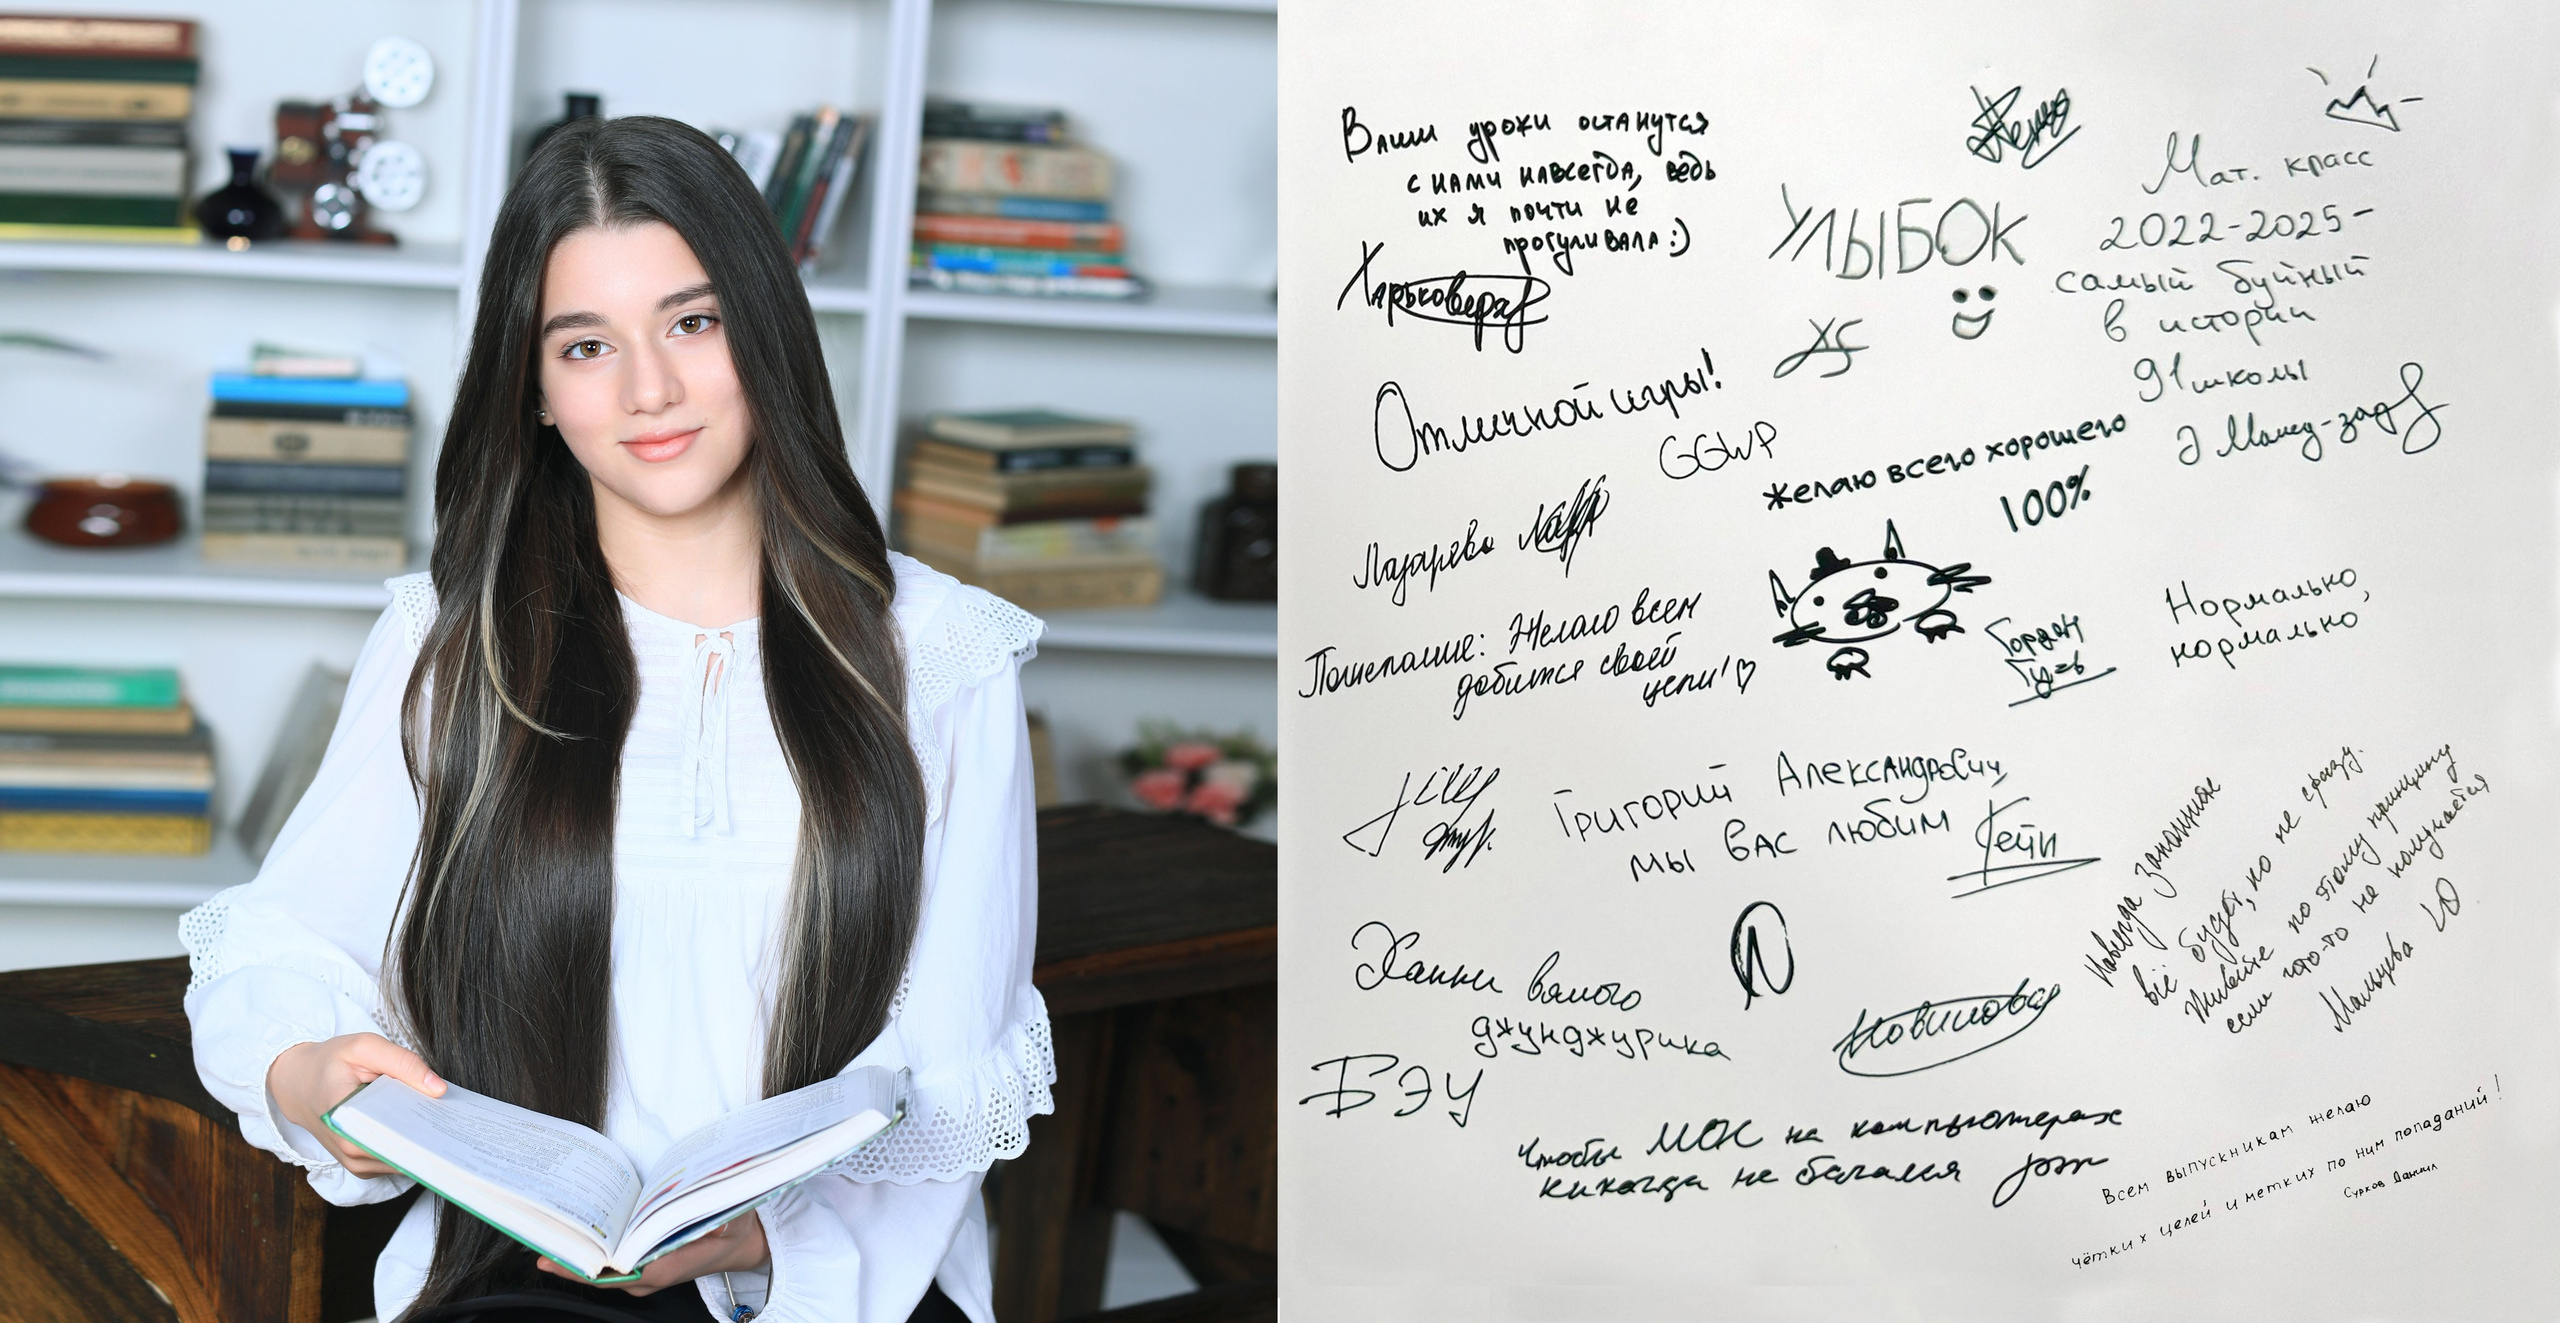 Ваши уроки останутся
с нами навсегда, ведь
их я почти не
прогуливала :)
УЛЫБОК
Мат. класс
2022-2025-
самый буйный
в истории
91 школы
Отличной игры!
GGWP
Лазарева
Желаю всего хорошего
100%
Пожелание: Желаю всем
добится своей
цели! ♡
Гордон
Гусь
Нормалько,
нормалько
Григорий Александрович,
мы вас любим
Кейп
Ханни вялого
джунджурика
БЭУ
Новикова
Чтобы МОК на компьютерах
никогда не багался
Навсегда запомним
всё будет, но не сразу.
Живите по этому принципу
если что-то не получается
Мальцева Ю
Всем выпускникам желаю
чётких целей и метких по ним попаданий!
Сурков Даниил